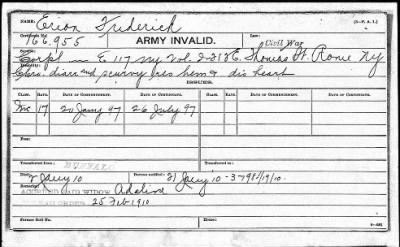 NAME: Erion Frederick (3-P. A. I.)
Certificate No. 166.955 ARMY INVALID. Civil War
Corpl E 117 Ny Vol. Thomas St. Rome Ny
Chro. diarr and scurvy res hem & dis heart
CLASS. RATE. DATE OF COMMENCEMENT. DATE OF CERTIFICATE. CLASS. RATE. DATE OF COMMENCEMENT. DATE OF CERTIFICATE.
17 20 Jany 97 26 July 97
From:
Transferred from: BUFFALO Transferred to:
Died: 2 Jany 10 Bureau notified: 21 Jany 10
Remarks: ACCRUED PAID WIDOW Adaline
ORDER 25 Feb 1910
Former Roll No.